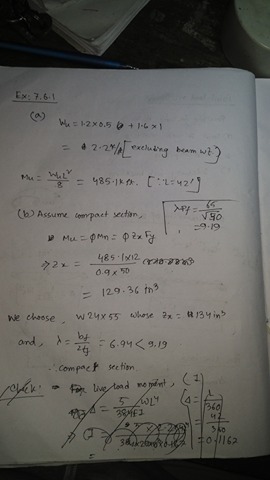 Ex: 7.6.1
(a)
Wu = 1.2×0.5 + 1.6×1
= 2.2k/ft [excluding beam wt.]
Mu = WuL²/8 = 485.1 k.ft. [∵ L=42']
(b) Assume compact section,
λpf = 65/√50
= 9.19
Mu = φMn = φZxFy
⇒ Zx = 485.1×12/0.9×50
= 129.36 in³
We choose, W24×55 whose Zx = 134 in³
and, λ = bf/2tf = 6.94 < 9.19
∴ compact section
Check: For live load moment,
Δ = 5/384EI WL⁴
Δ = L/360
= 42/360
= 0.1162